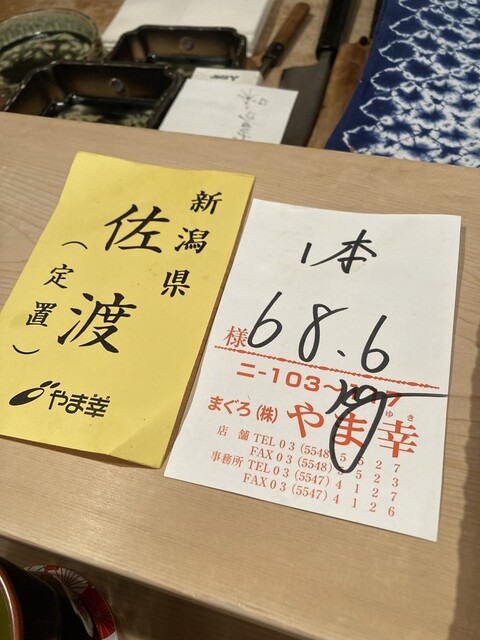 新潟県
佐渡
(定置)
やま幸
1本
様 68.6
kg
ニ-103~107
まぐろ(株)やま幸
ゆき
店舗 TEL03(5548)5527
FAX03(5548)5523
事務所 TEL03(5547)4127
FAX03(5547)4126